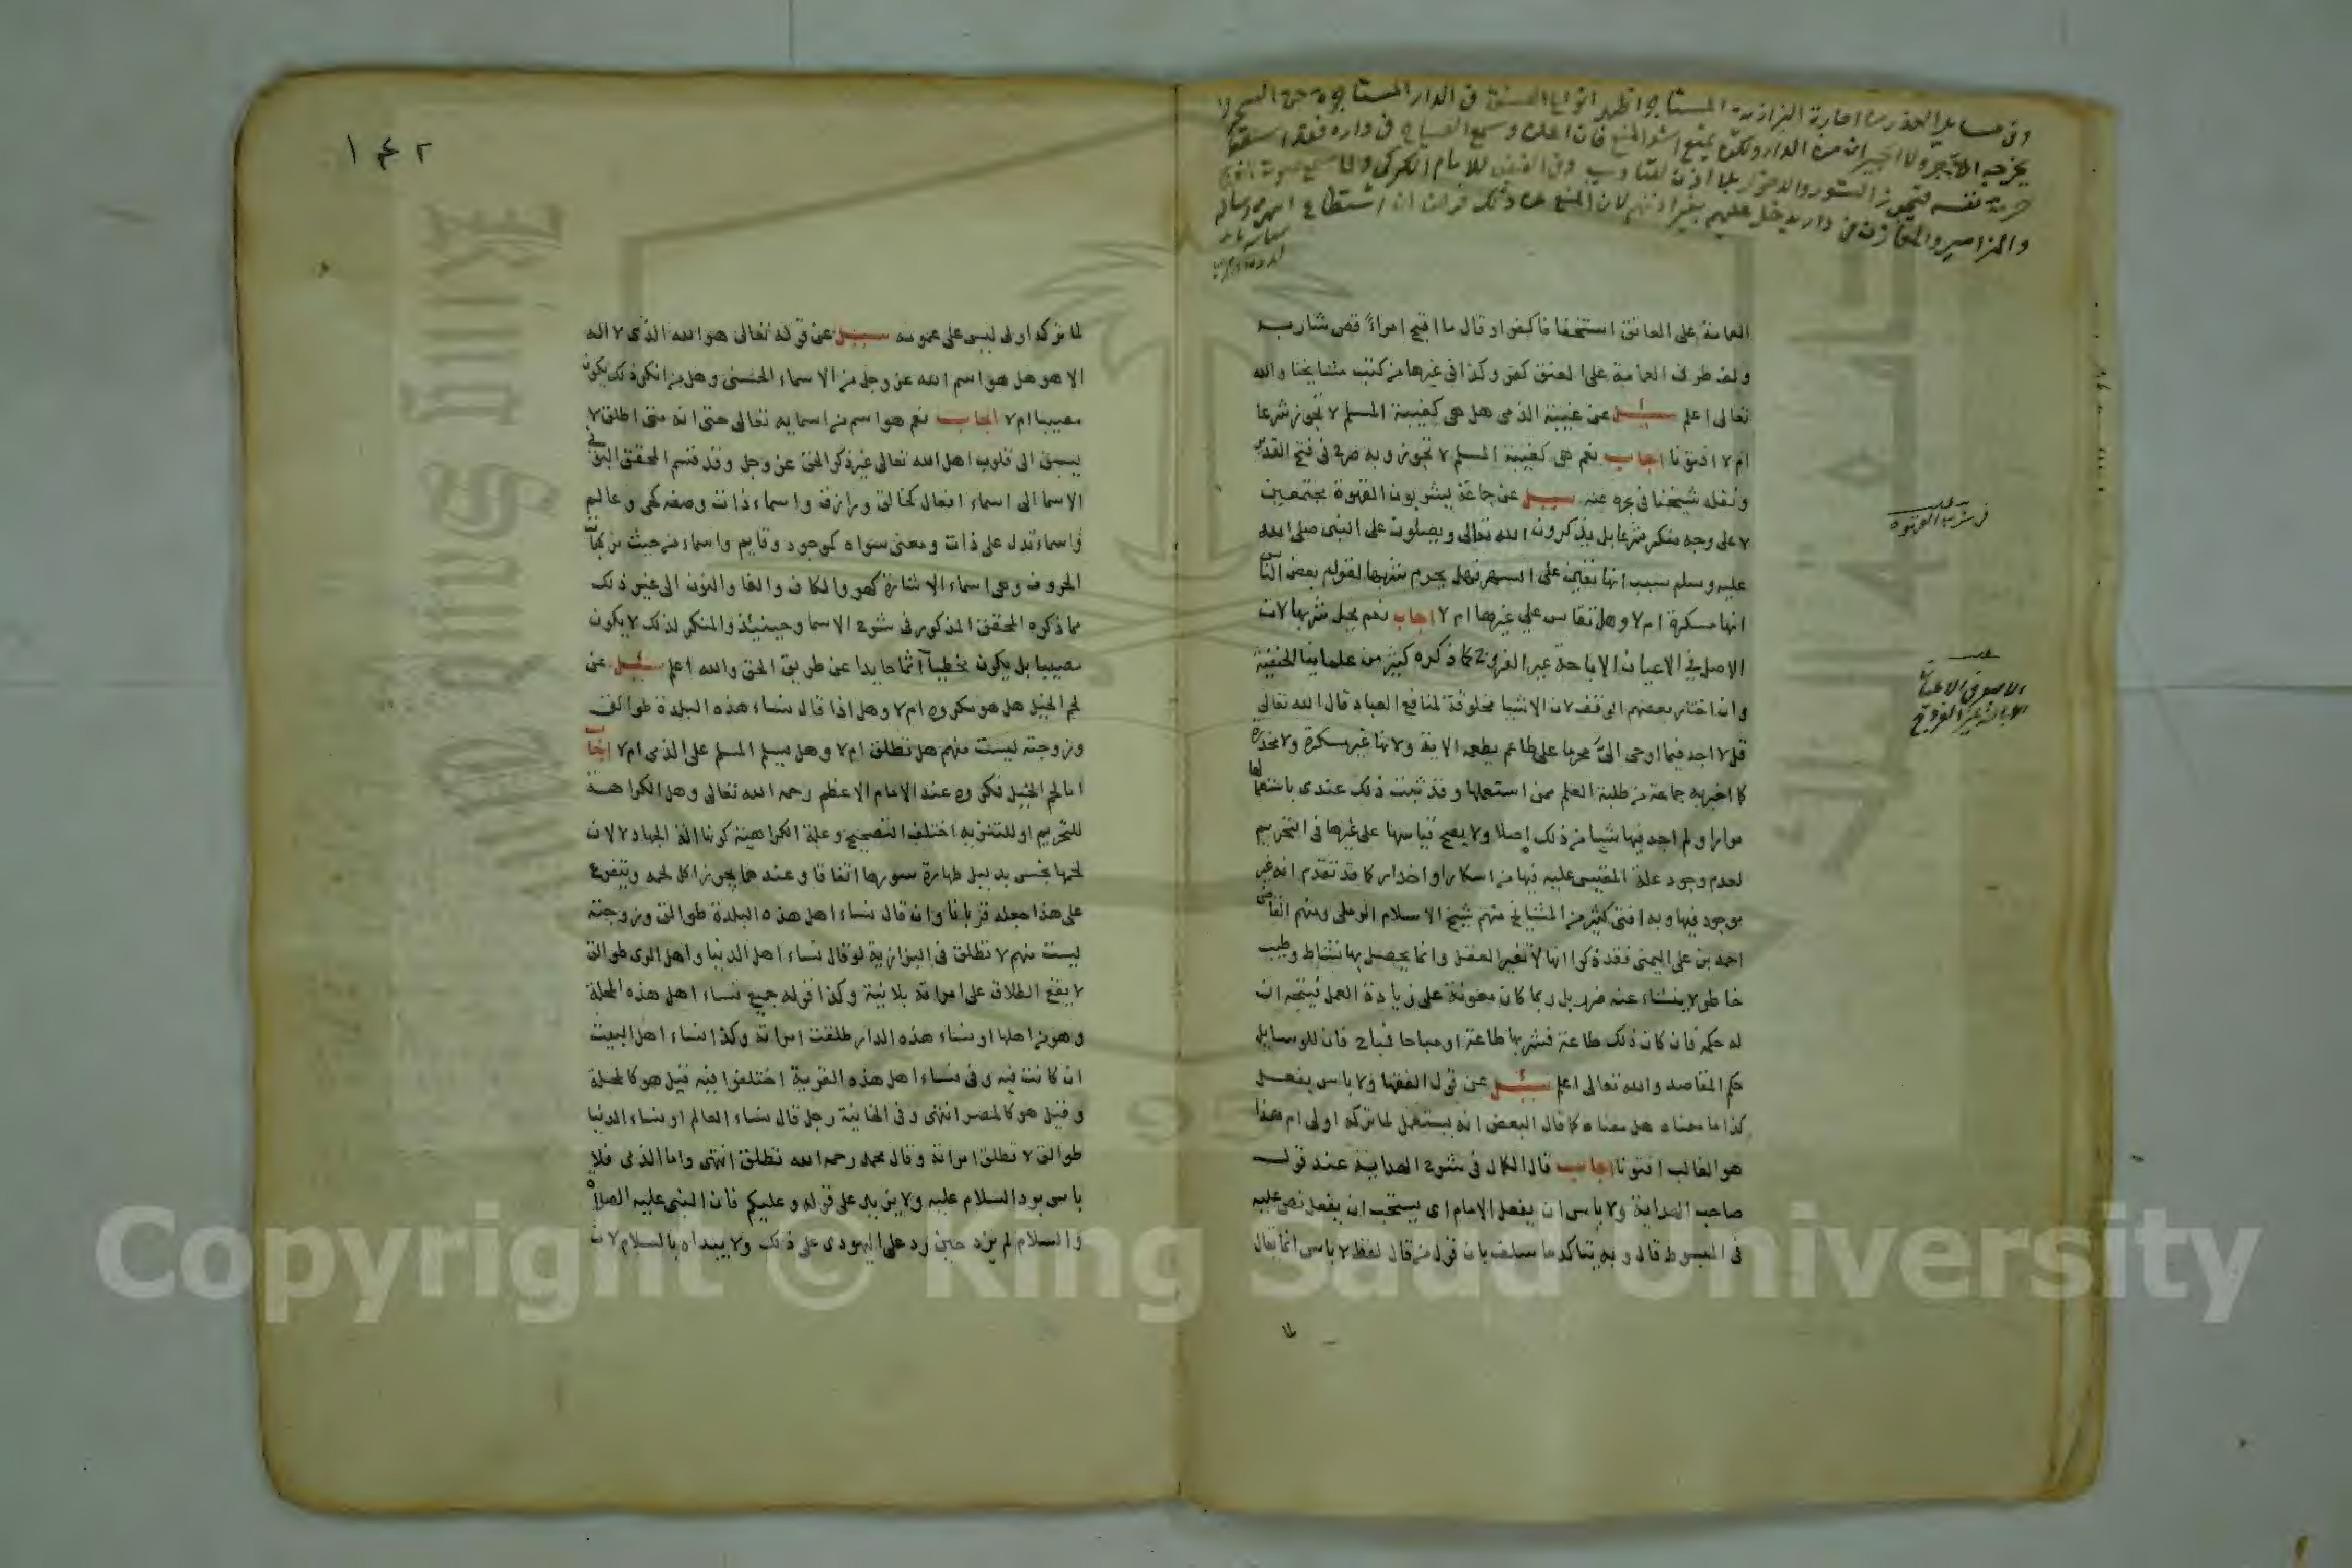 العامة على العاتق استخفافا كفر او قال ما اقبح امراة قص شاربه
ولف طرف العمامة على العنق كفر وكذا في غيرها من كتب مشايخنا والله
تعالى اعلم سئل عن غيبة الذمي هل هي كغيبة المسلم لا تجوز شرعا
ام لا افتونا اجاب نعم هي كغيبة المسلم لا تجوز وبه صرح في فتح القدير
ونقله شيخنا في بحره عنه سئل عن جماعة يشربون القهوة مجتمعين
لا على وجه منكر شرعا بل يذكرون الله تعالى ويصلون على النبي صلى الله
عليه وسلم بسبب انها تعين على السهر فهل يحرم شربها لقول بعض الناس
انها مسكرة ام لا وهل تقاس على غيرها ام لا اجاب نعم يحل شربها لان
الاصل في الاعيان الاباحة غير الفروج كما ذكره كثير من علماينا الحنفية
وان اختار بعضهم الوقف لان الاشيا مخلوقة لمنافع العباد قال الله تعالى
قل لا اجد فيما اوحي الي محرما على طاعم يطعمه الاية ولانها غير مسكرة ولا مخدرة
كما اخبر به جماعة من طلبة العلم ممن استعملها وقد ثبت ذلك عندي باستعمالها
مرارا ولم اجد فيها شيا من ذلك اصلا ولا يصح قياسها على غيرها في التحريم
لعدم وجود علة المقيس عليه فيها من اسكار او اخدار كما قد تقدم انه غير
موجود فيها وبه افتى كثير من المشايخ منهم شيخ الاسلام الرملي ومنهم القاضي
احمد بن علي اليمني فقد ذكروا انها لا تغير العقل وانما يحصل بها نشاط وطيب
خاطر لا ينشاء عنه ضرر بل ربما كان معونة على زيادة العمل فيتجه ان
له حكمه فان كان ذلك طاعة فشربها طاعة او مباحا فمباح فان للوسايل
حكم المقاصد والله تعالى اعلم سئل عن قول الفقها ولا باس بفعل
كذا ما معناه هل معناه كما قال البعض انه يستعمل لما تركه اولى ام هذا
هو الغالب افتونا اجاب قال الكمال في شرح الهداية عند قول
صاحب الهداية ولا باس ان يفعل الامام اي يستحب ان يفعل نص عليه
في المبسوط قال وبه يتاكد ما سلف بان قول من قال لفظ لا باس انما يقال
في شرب القهوة
الاصل في الاعيان
الاباحة غير الفروج
١٤٢
لما تركه اولى ليس على عمومه سئل عن قوله تعالى هو الله الذي لا اله
الا هو هل هو اسم الله عز وجل من الاسماء الحسنى وهل من انكر ذلك يكون
مصيبا ام لا اجاب نعم هو اسم من اسمايه تعالى حتى انه متى اطلق لا
يسبق الى قلوب اهل الله تعالى غير ذكر الحق عز وجل وقد قسم المحقق البوني
الاسما الى اسماء افعال كخالق ورازق واسماء ذات وصفه كحي وعالم
واسماء تدل على ذات ومعنى سواه كموجود وقايم واسماء من حيث تركبات
الحروف وهي اسماء الاشارة كهو والكاف والفا والنون الى غير ذلك
مما ذكره المحقق المذكور في شرح الاسما وحينيئذ والمنكر لذلك لا يكون
مصيبا بل يكون مخطيا آثما حايدا عن طريق الحق والله اعلم سئل عن
لحم الخيل هل هو مكروه ام لا وهل اذا قال نساء هذه البلدة طوالق
وزوجته ليست منهم هل تطلق ام لا وهل يسلم المسلم على الذمي ام لا اجاب
اما لحم الخيل فمكروه عند الامام الاعظم رحمه الله تعالى وهل الكراهة
للتحريم او للتنزيه اختلف التصحيح وعلة الكراهية كونها الة الجهاد لا لان
لحمها نجس بدليل طهارة سورها اتفاقا وعندهما يجوز اكل لحمه ويتفرع
على هذا جعله قربانا وان قال نساء اهل هذه البلدة طوالق وزوجته
ليست منهم لا تطلق في البزازية لو قال نساء اهل الدنيا واهل الري طوالق
لا يقع الطلاق على امراته بلا نية وكذا قوله جميع نساء اهل هذه المحلة
وهو من اهلها او نساء هذه الدار طلقت امراته وكذا نساء اهل البيت
ان كانت فيه وفي نساء اهل هذه القرية اختلفوا فيه قيل هو كالمحلة
وقيل هو كالمصر انتهى وفي الخانية رجل قال نساء العالم او نساء الدنيا
طوالق لا تطلق امراته وقال محمد رحمه الله تطلق انتهى واما الذمي فلا
باس برد السلام عليه ولا يزيد على قوله وعليكم فان النبي عليه الصلاة
والسلام لم يزد حين رد على اليهودي على ذلك ولا يبداه بالسلام لان
Copyright © King Saud University